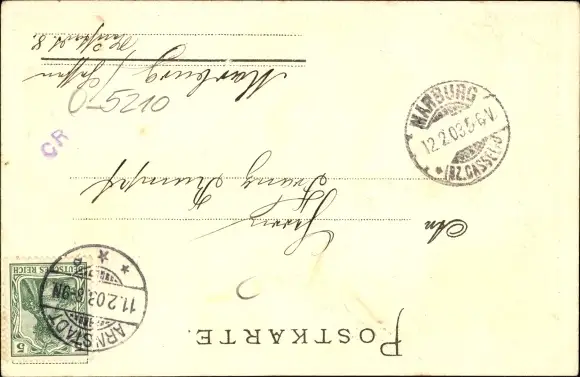 POSTKARTE.
ARNSTADT
11.2.03.6-9N
DEUTSCHES REICH
5
An
Herrn
Franz Rumpf
MARBURG
12.2.03.5-6V.
(BZ.CASSEL)
CR
O-5210
Marburg / Hessen